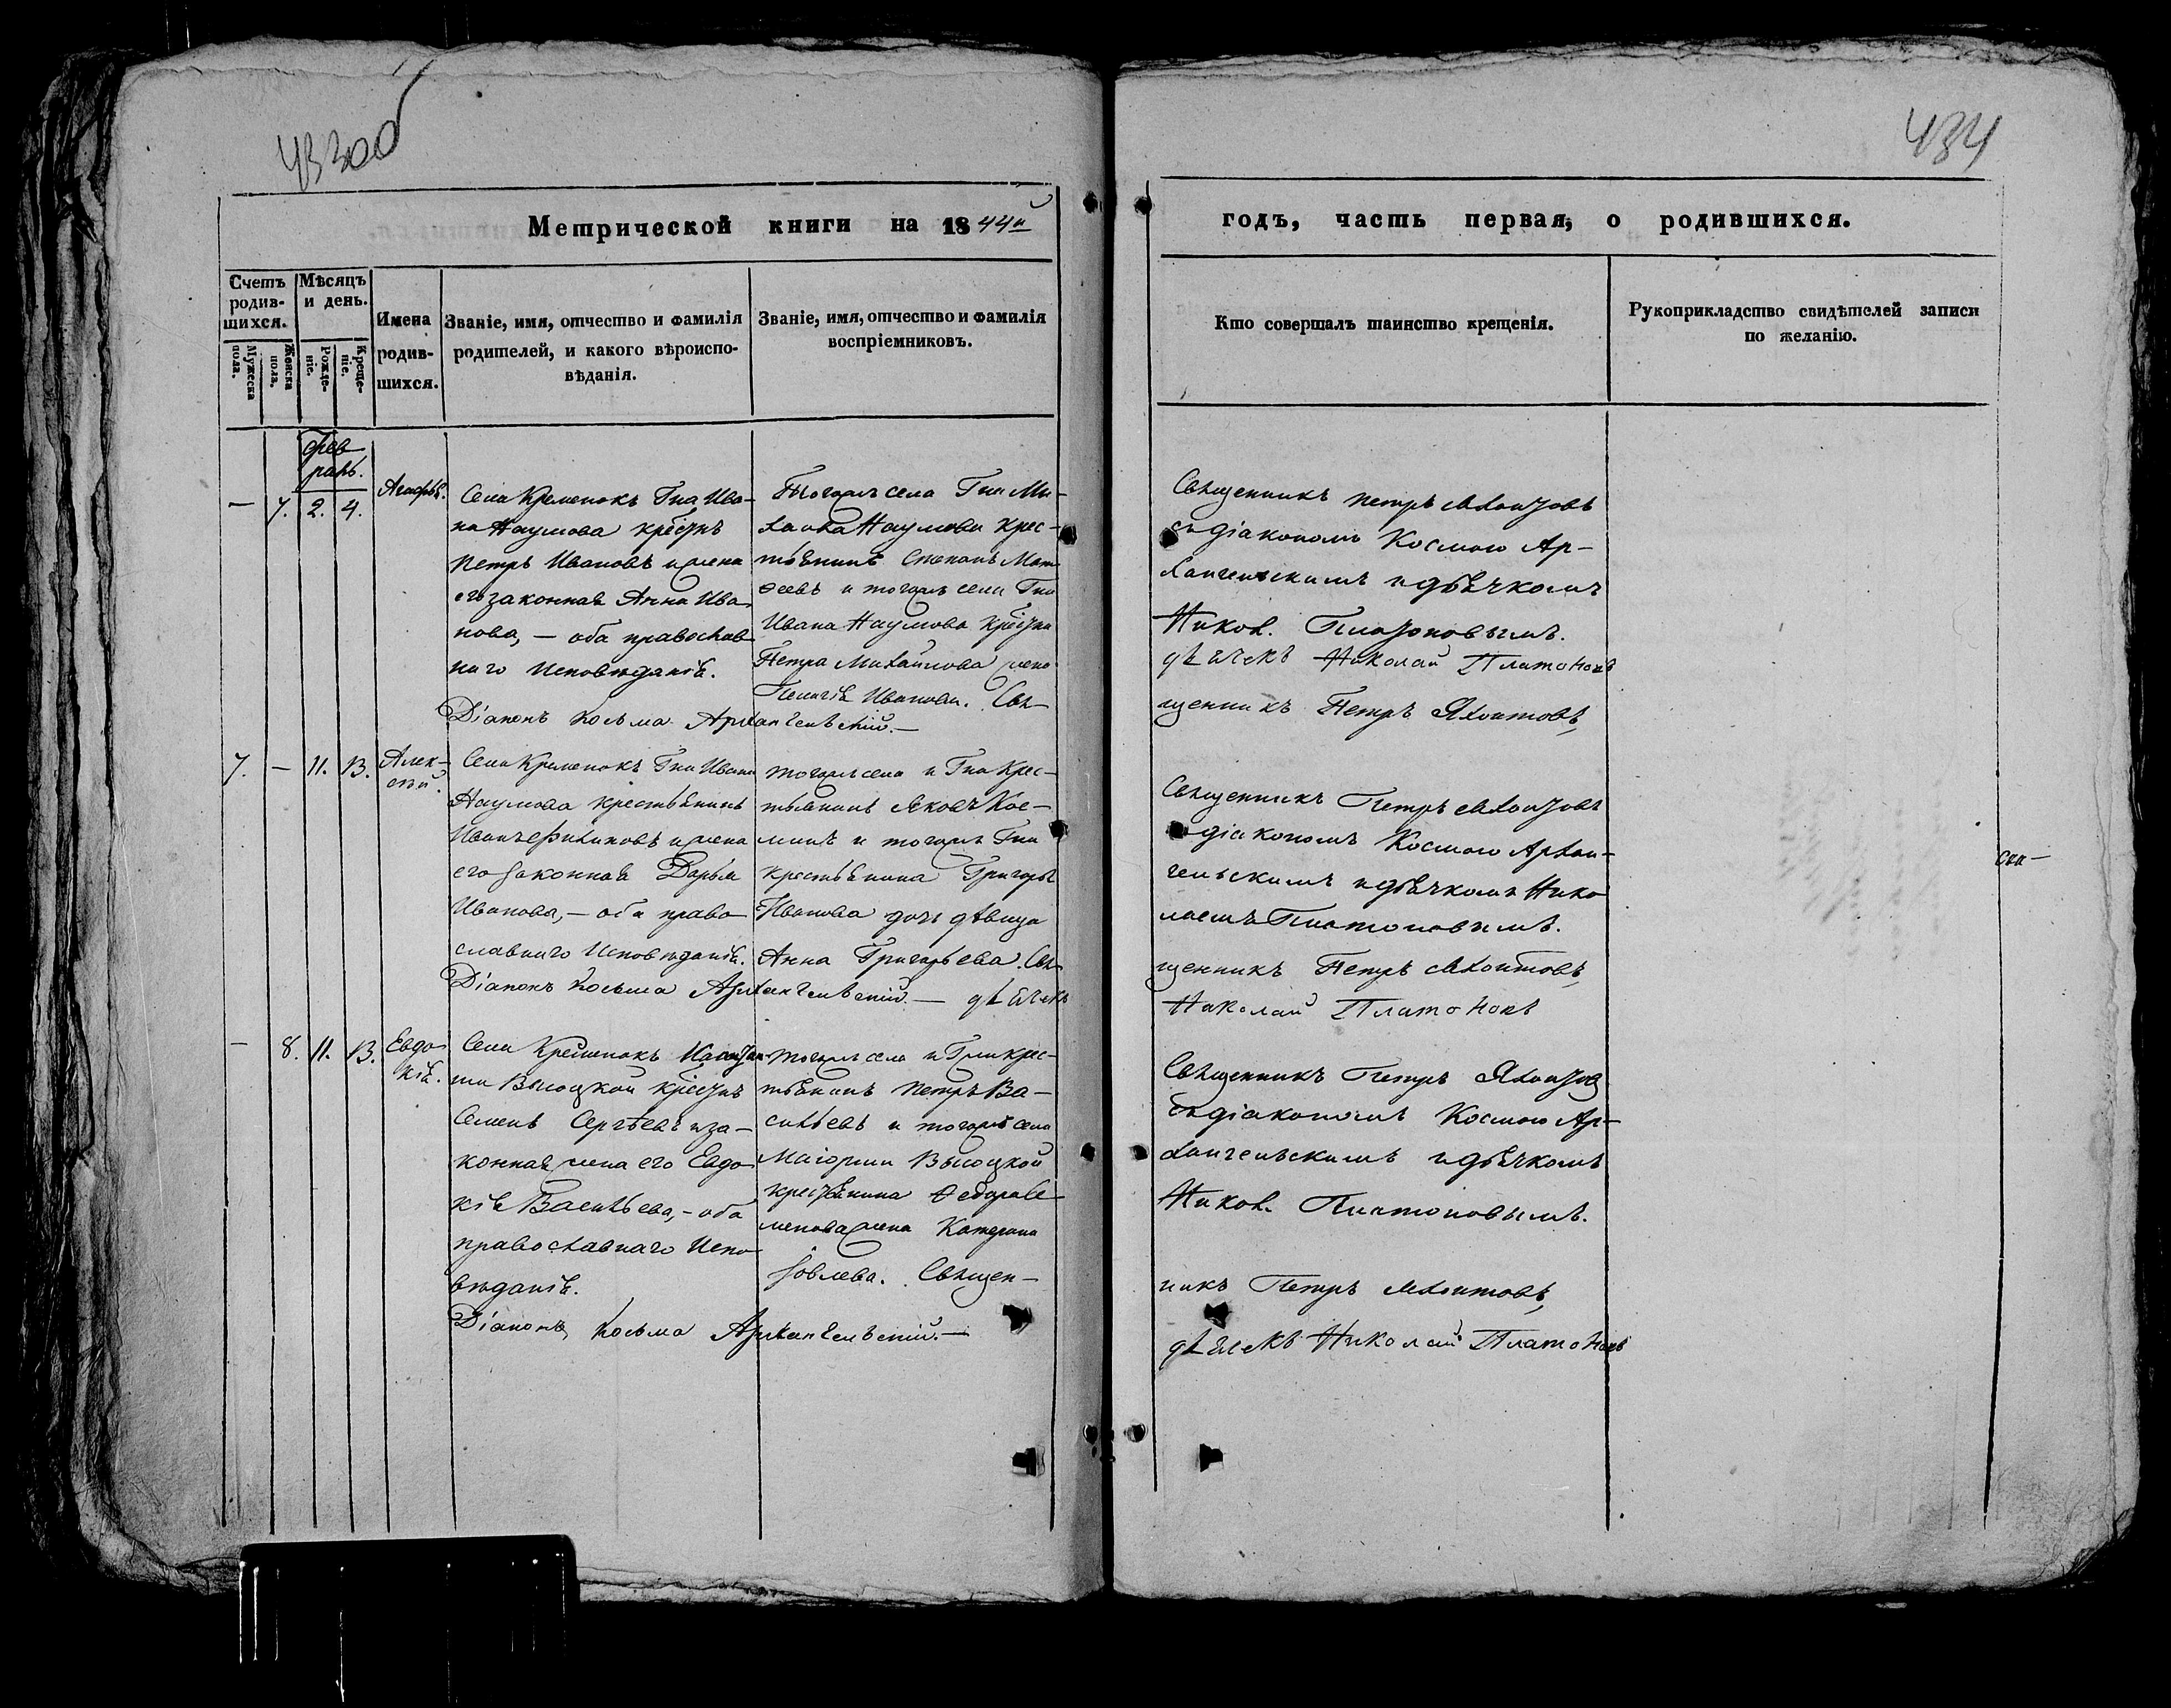 433об
434
Метрической книги на 1844й
годъ, часть первая, о родившихся.
Счетъ родив-шихся.
Мужеска пола.
Женска пола.
Мѣсяцъ и день.
Рожде-ніе.
Креще-ніе.
Имена родив-шихся.
Званіе, имя, отчество и фамилія
родителей, и какого вѣроиспо-
вѣданія.
Званіе, имя, отчество и фамилія
воспріемниковъ.
Кто совершалъ таинство крещенія.
Рукоприкладство свидѣтелей записи
по желанію.
Фев
раль.
— 7. 2. 4.
Агафья.
Села Кременокъ Гна Ива-
на Наумова крестнъ
Петръ Ивановъ и жена
его законная Анна Ива
нова, — оба православ
наго исповѣданія.
тогожъ села Гна Ми-
хаила Наумова крес-
тьянинъ Степанъ Мат
ѳеевъ и тогожъ села Гна
Ивана Наумова крестна
Петра Михайлова жена
Пелагія Иванова. Свя-
Діаконъ Косьма Архангельскій.—
Священникъ Петръ Яхонтовъ
съ діакономъ Космою Ар-
хангельскимъ и дьячкомъ
Никол. Платоновымъ.
дьячекъ Николай Платоновъ
щенникъ Петръ Яхонтовъ,
7. — 11. 13.
Алек-
сѣй.
Села Кременокъ Гна Ивана
Наумова крестьянинъ
Иванъ Филиповъ и жена
его законная Дарья
Иванова, — оба право
славнаго исповѣданія.
тогожъ села и Гна крес-
тьянинъ Яковъ Кос-
минъ и тогожъ Гна
крестьянина Григорья
Иванова дочь дѣвица
Анна Григорьева. Свя
Діаконъ Косьма Архангельскій. — дьячекъ
Священникъ Петръ Яхонтовъ
съ діакономъ Космою Архан-
гельскимъ и дьячкомъ Нико
лаемъ Платоновымъ.
щенникъ Петръ Яхонтовъ,
Николай Платоновъ
свя—
— 8. 11. 13.
Евдо
кія.
Села Кременокъ
ши Высоцкой крестнъ
Семенъ Сергѣевъ и за-
конная жена его Евдо
кія Васильева, — оба
православнаго испо
вѣданія.
тогожъ села и Гжи крес-
тьянинъ Петръ Ва-
сильевъ и тогожъ села
Маіорши Высоцкой
крестьянина Ѳедора Се
менова жена Катерина
Священ-
Діаконъ Косьма Архангельскій.—
Священникъ Петръ Яхонтов
съ діакономъ Космою Ар-
хангельскимъ и дьячкомъ
Никол. Платоновымъ.
никъ Петръ Яхонтовъ,
дьячекъ Николай Платоновъ